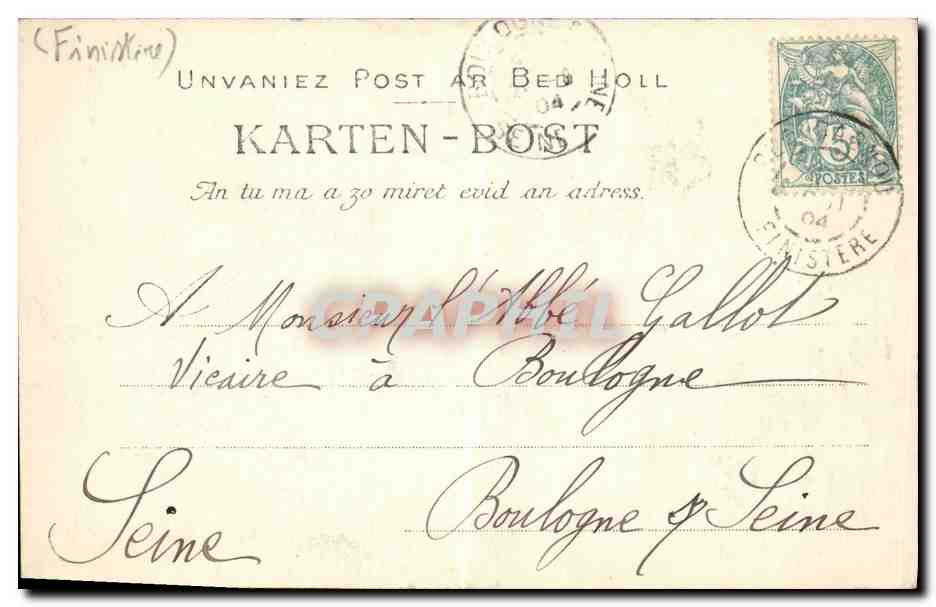 (Finistère)
UNVANIEZ POST AR BED HOLL
KARTEN-BOST
An tu ma a zo miret evid an adress.
BOULOGNE
04
SEINE
POSTES
04
FINISTERE
CPAPHIL
A Monsieur l'Abbé Gallot
Vicaire à Boulogne
Boulogne s/ Seine
Seine